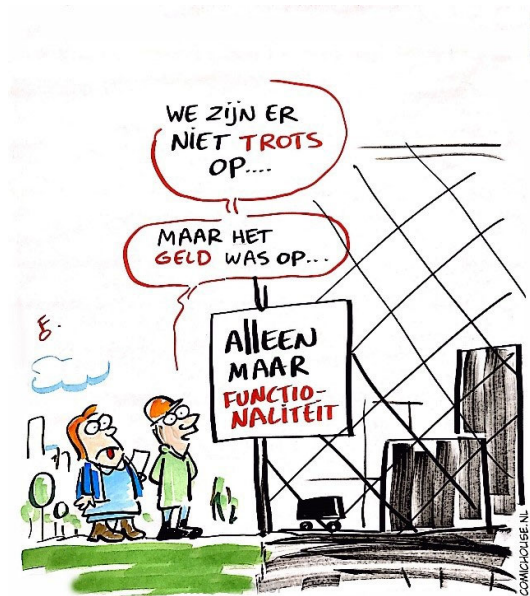 WE ZIJN ER
NIET TROTS
OP....
MAAR HET
GELD WAS OP...
AllEEN
MAAR
FUNCTIO-
NALITEIT
COMICHOUSE.NL